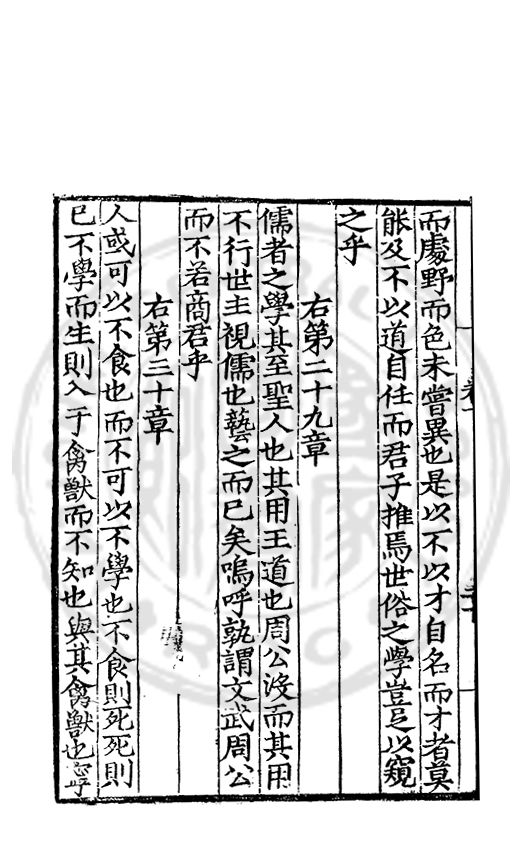 而處野而色未嘗異也是以不以才自名而才者莫
能及不以道自任而君子推焉世俗之學豈足以窺
之乎
右第二十九章
儒者之學其至聖人也其用王道也周公沒而其用
不行世主視儒也藝之而已矣嗚呼孰謂文武周公
而不若商君乎
右第三十章
人或可以不食也而不可以不學也不食則死死則
已不學而生則入于禽獸而不知也與其禽獸也寧